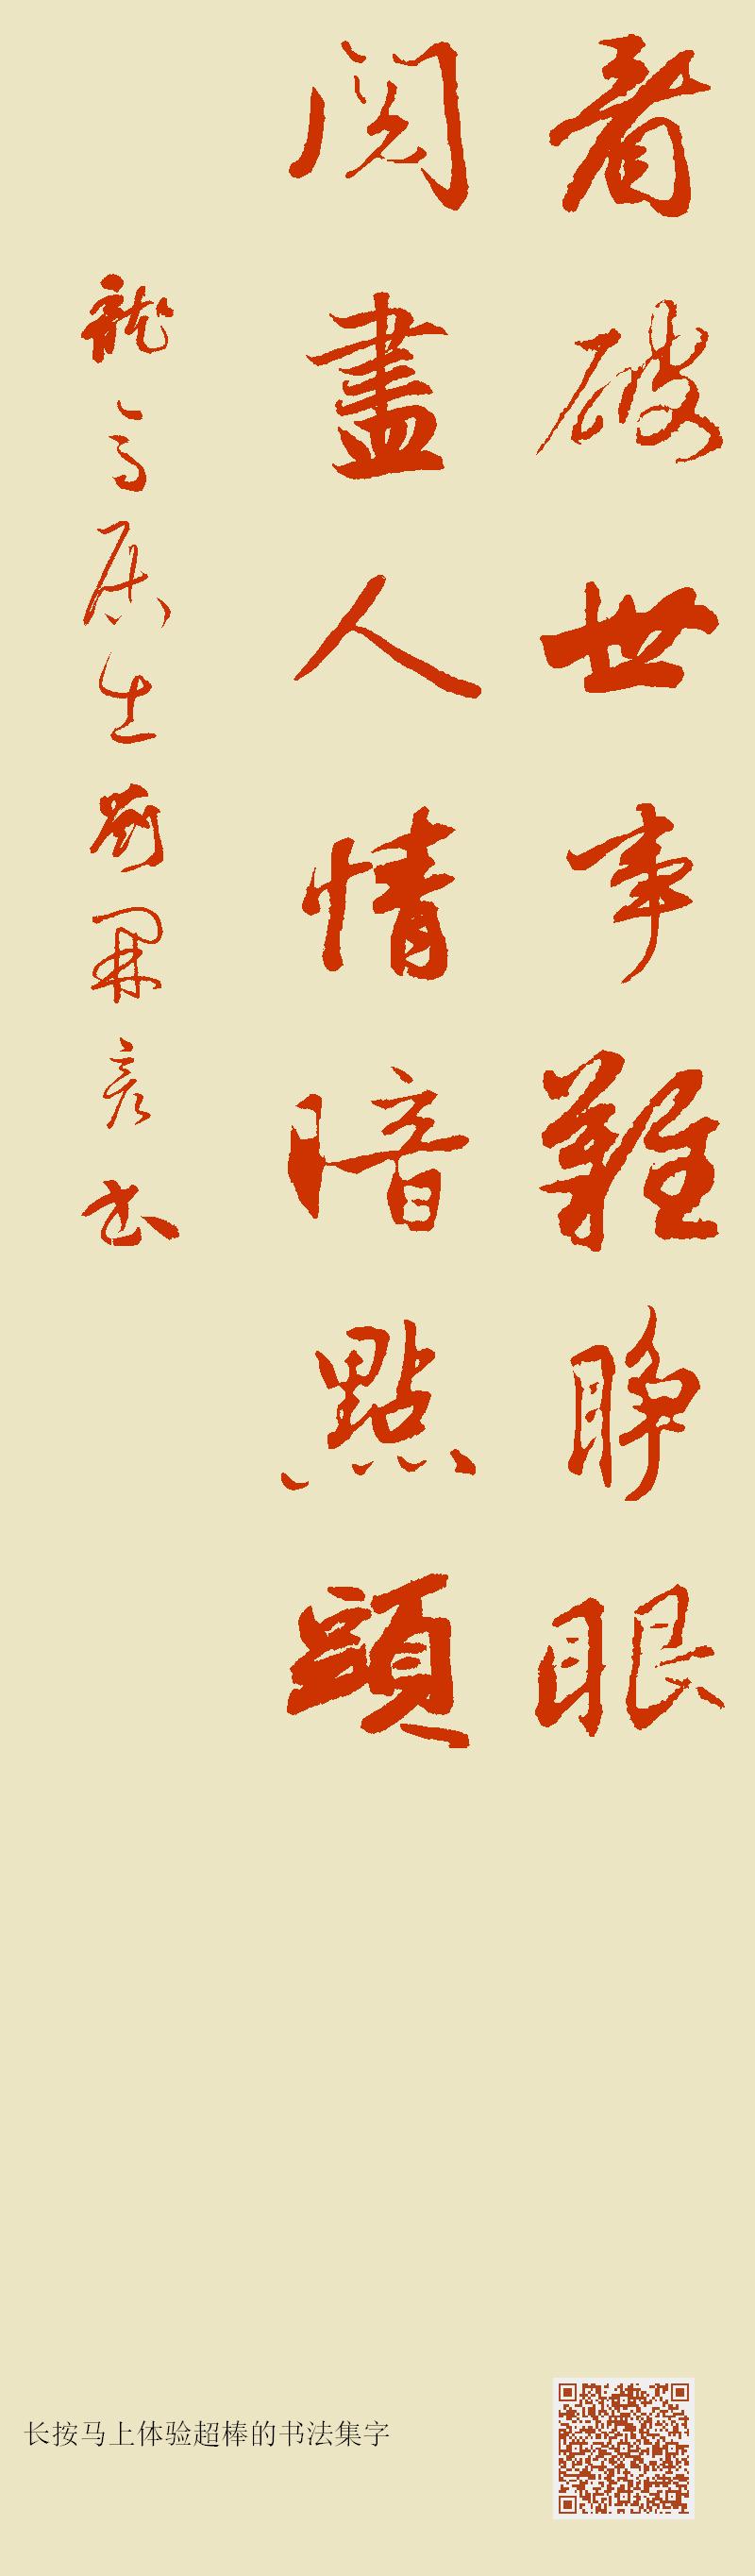 看破世事難睁眼
閱盡人情暗點頭
龍居生劉開彥书
长按马上体验超棒的书法集字